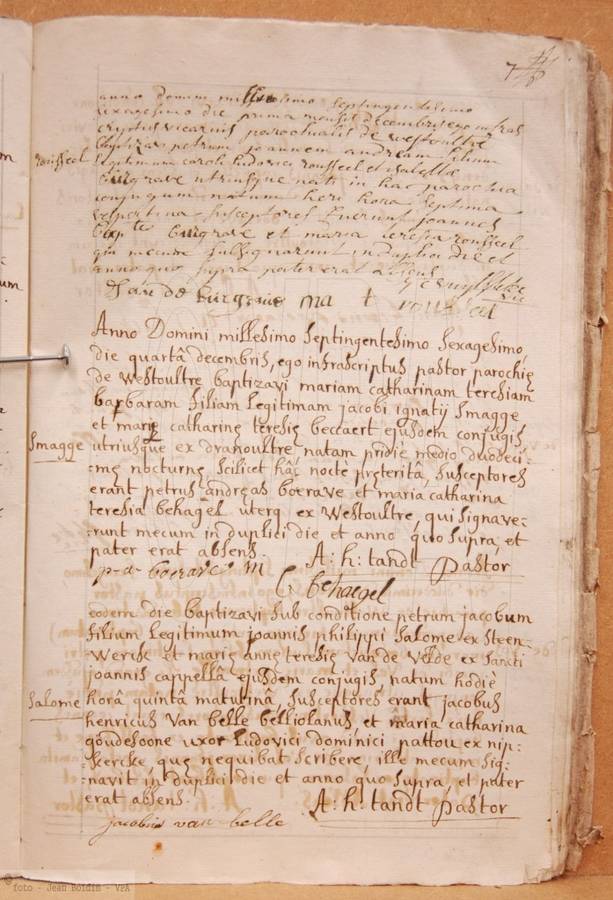 anno domini millesimo septingentesimo
sexagesimo die prima mensis decembris ego infras
criptus vicarius parochialis de westoultre
baptizavi petrum joannem andream filium
rousseel
legitimum caroli ludovici rousseel et isabellæ
burgrave utriusque nati in hac parochia
conjugum natum heri hora septima
vespertina susceptores fuerunt joannes
bapte burgrave et maria teresia rousseel
qui mecum subsignarunt in duplici die et
anno quo supra pater erat absens
Jan de burgrave ma t rousseel
Anno Domini millesimo septingentesimo sexagesimo,
die quartâ decembris, ego infrascriptus pastor parochię
de Westoultre baptizavi mariam catharinam teresiam
barbaram filiam Legitimam jacobi ignatij Smagge
et marię catharinę teresię beccaert ejusdem conjugis
Smagge
utriusque ex dranoultre, natam pridiè medio duodeci-
-mę nocturnę scilicet hâc noctè pręteritâ, susceptores
erant petrus andreas boerave et maria catharina
teresia behagel uterq ex Westoultre, qui signave-
-runt mecum in duplici die et anno quo supra, et
pater erat absens.
A: h: tandt Pastor
p-a- boerave M
C behaegel
eodem die baptizavi sub conditione petrum jacobum
filium Legitimum joannis philippi Salome ex Steen-
Wercke et marię annę teresię Van de Velde ex sancti
joannis cappellâ ejusdem conjugis, natum hodiè
Salome
horâ quintâ matutinâ, susceptores erant jacobus
henricus Van belle belliolanus et maria catharina
goudesoone uxor Ludovici dominici pattou ex nip-
-kercke quę nequibat scribere, ille mecum sig-
-navit in duplici die et anno quo supra, et pater
erat absens.
A: h: tandt Pastor
jacobus van belle
©foto - Jean Boidin - VPA